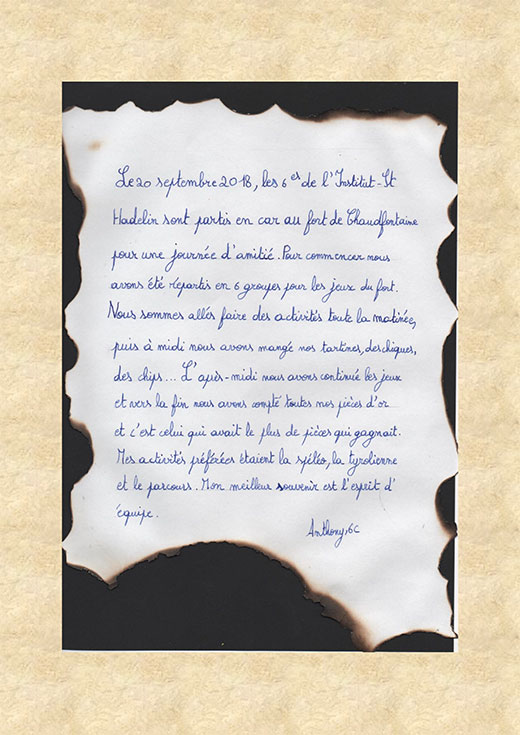 Le 20 septembre 2018, les 6es de l'Institut-St
Hadelin sont partis en car au fort de Chaudfontaine
pour une journée d'amitié. Pour commencer nous
avons été répartis en 6 groupes pour les jeux du fort.
Nous sommes allés faire des activités toute la matinée,
puis à midi nous avons mangé nos tartines, des chiques,
des chips... L'après-midi nous avons continué les jeux
et vers la fin nous avons compté toutes nos pièces d'or
et c'est celui qui avait le plus de pièces qui gagnait.
Mes activités préférées étaient la spéléo, la tyrolienne
et le parcours. Mon meilleur souvenir est l'esprit d'
équipe.
Anthony, 6C